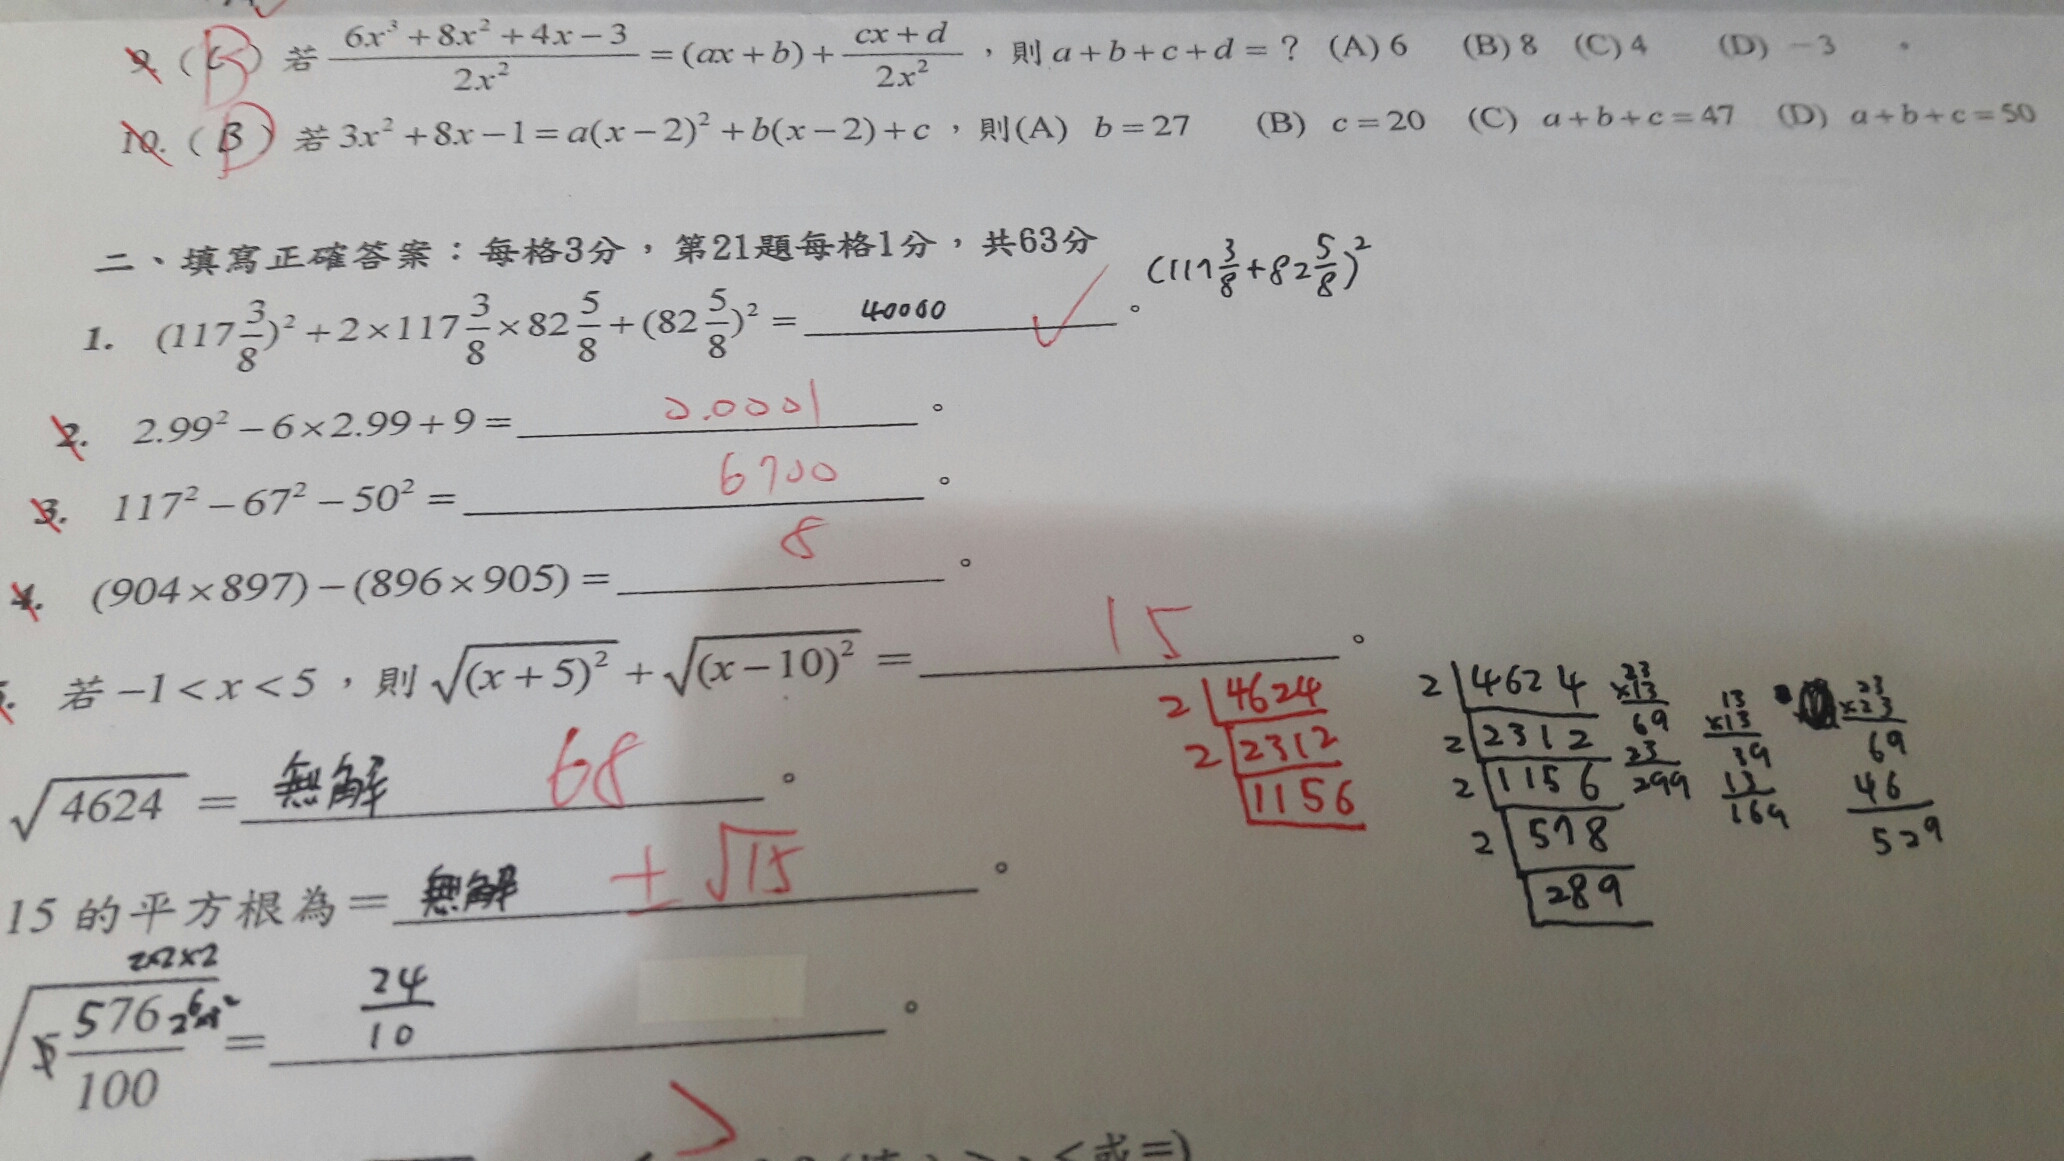 9. ( ) 若 \frac{6x³+8x²+4x−3}{2x²} = (ax+b) + \frac{cx+d}{2x²} ,則 a+b+c+d = ? (A) 6 (B) 8 (C) 4 (D) −3
10. ( B ) 若 3x²+8x−1 = a(x−2)²+b(x−2)+c ,則(A) b=27 (B) c=20 (C) a+b+c=47 (D) a+b+c=50
二、填寫正確答案:每格3分,第21題每格1分,共63分
(117\frac{3}{8}+82\frac{5}{8})²
1. (117\frac{3}{8})²+2×117\frac{3}{8}×82\frac{5}{8}+(82\frac{5}{8})² = 40000 。
2. 2.99²−6×2.99+9 = 0.0001 。
3. 117²−67²−50² = 6700 。
4. (904×897)−(896×905) = 8 。
若 −1<x<5,則 √(x+5)² + √(x−10)² = 15 。
√4624 = 無解 68 。
15 的平方根為= 無解 ±√15 。
2×2×2
√\frac{576}{100} = \frac{24}{10} 。
2 4624
2 2312
1156
2 4624
2 2312
2 1156
2 578
289
23
×13
69
23
299
13
×13
39
13
169
23
×23
69
46
529
>
<(或=)